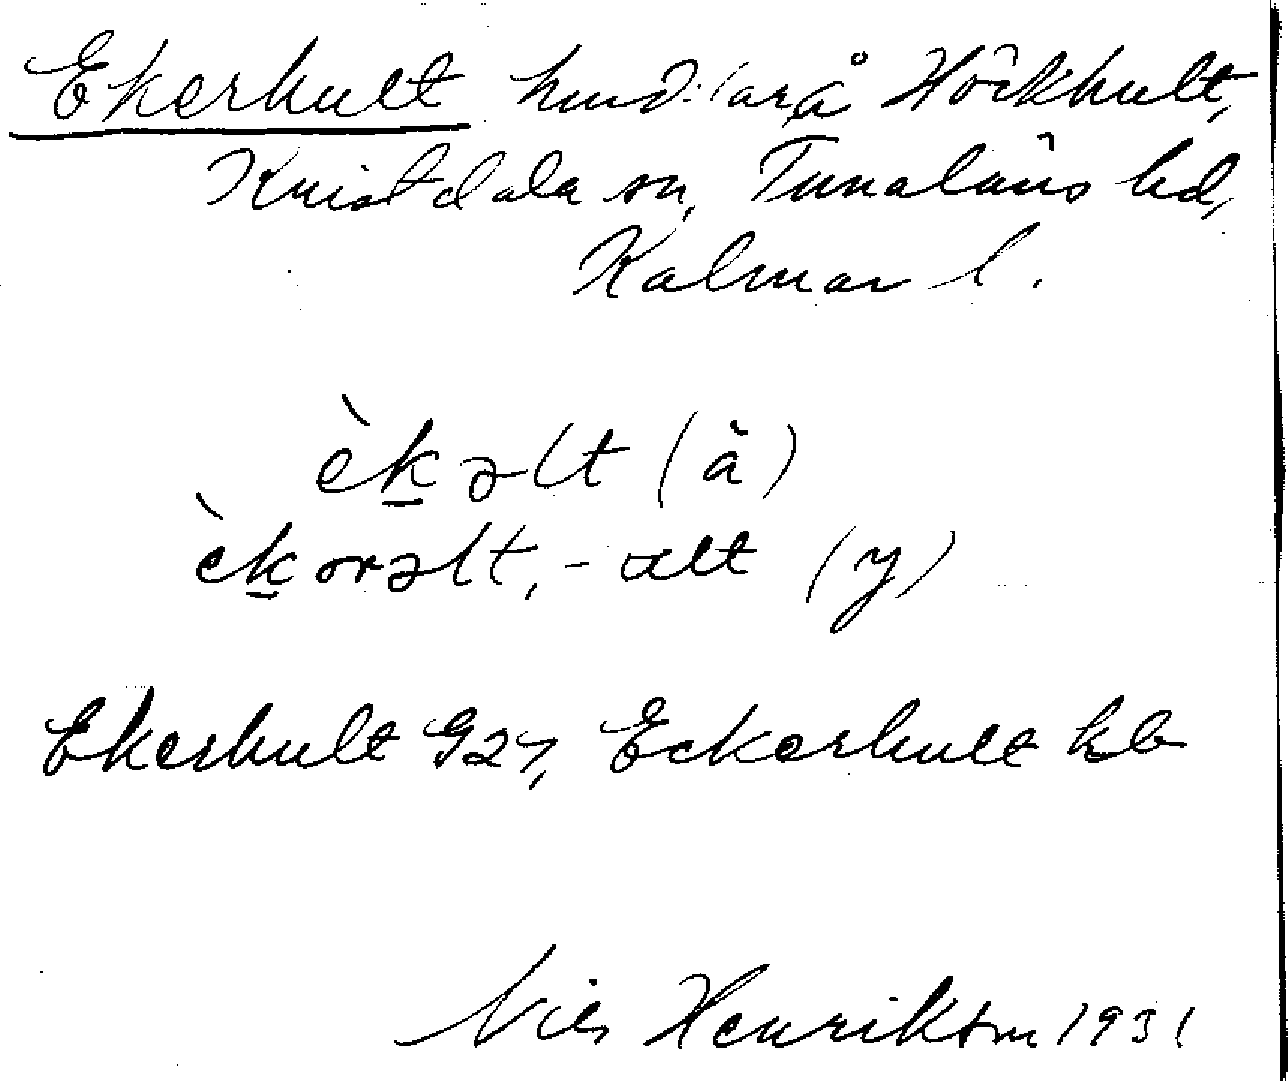 Ekerhult på Höckhult,
Kristdala sn, Tunaläns hd,
Kalmar l.
èkəlt (ä)
èkorəlt, -ult (y)
Ekerhult G27, Eckerhult kb
Nils Henrikson 1931